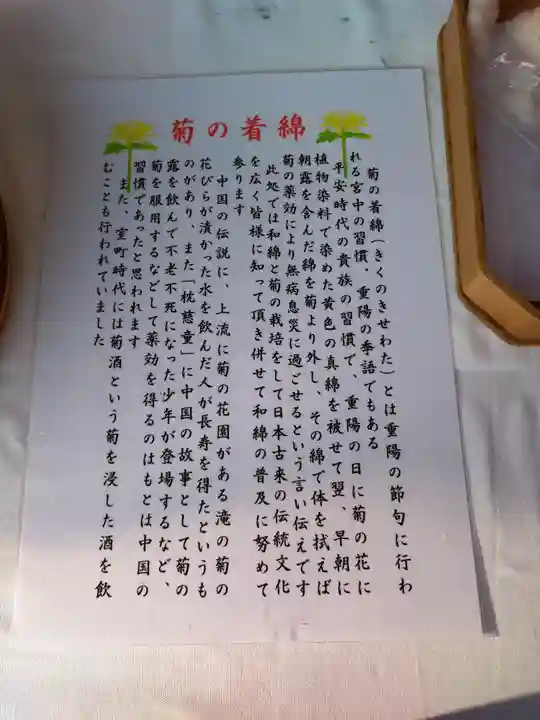 菊の着綿
菊の着綿(きくのきせわた)とは重陽の節句に行わ
れる宮中の習慣、重陽の季語でもある
平安時代の貴族の習慣で、重陽の日に菊の花に
植物染料で染めた黄色の真綿を被せて翌、早朝に
朝露を含んだ綿を菊より外し、その綿で体を拭えば
菊の薬効により無病息災に過ごせるという言い伝えです
此処では和綿と菊の栽培をして日本古来の伝統文化
を広く皆様に知って頂き併せて和綿の普及に努めて
参ります
中国の伝説に、上流に菊の花園がある滝の菊の
花びらが漬かった水を飲んだ人が長寿を得たというも
のがあり、また「枕慈童」に中国の故事として菊の
露を飲んで不老不死になった少年が登場するなど、
菊を服用するなどして薬効を得るのはもとは中国の
習慣であったと思われます
また、室町時代には菊酒という菊を浸した酒を飲
むことも行われていました